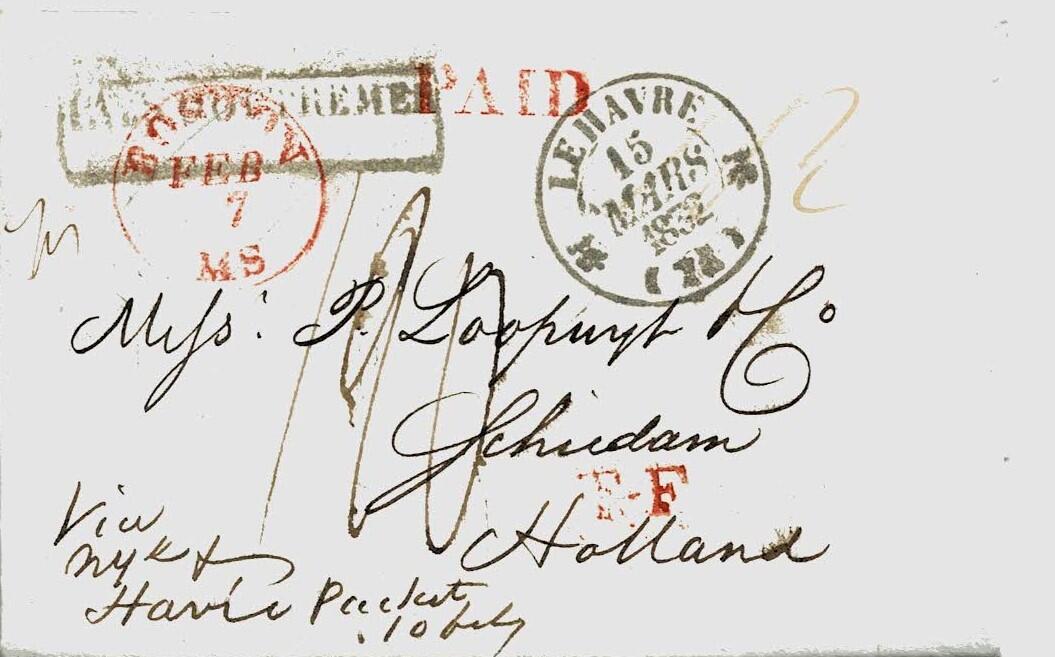 PAYS D'OUTREMER
PAID
BOSTON
FEB
7
MS
LE HAVRE
15
MARS
1832
Mess: P. Loopuyt & Co
Schiedam
T.F
Holland
Via
NYk &
Havre Packet
10 feby